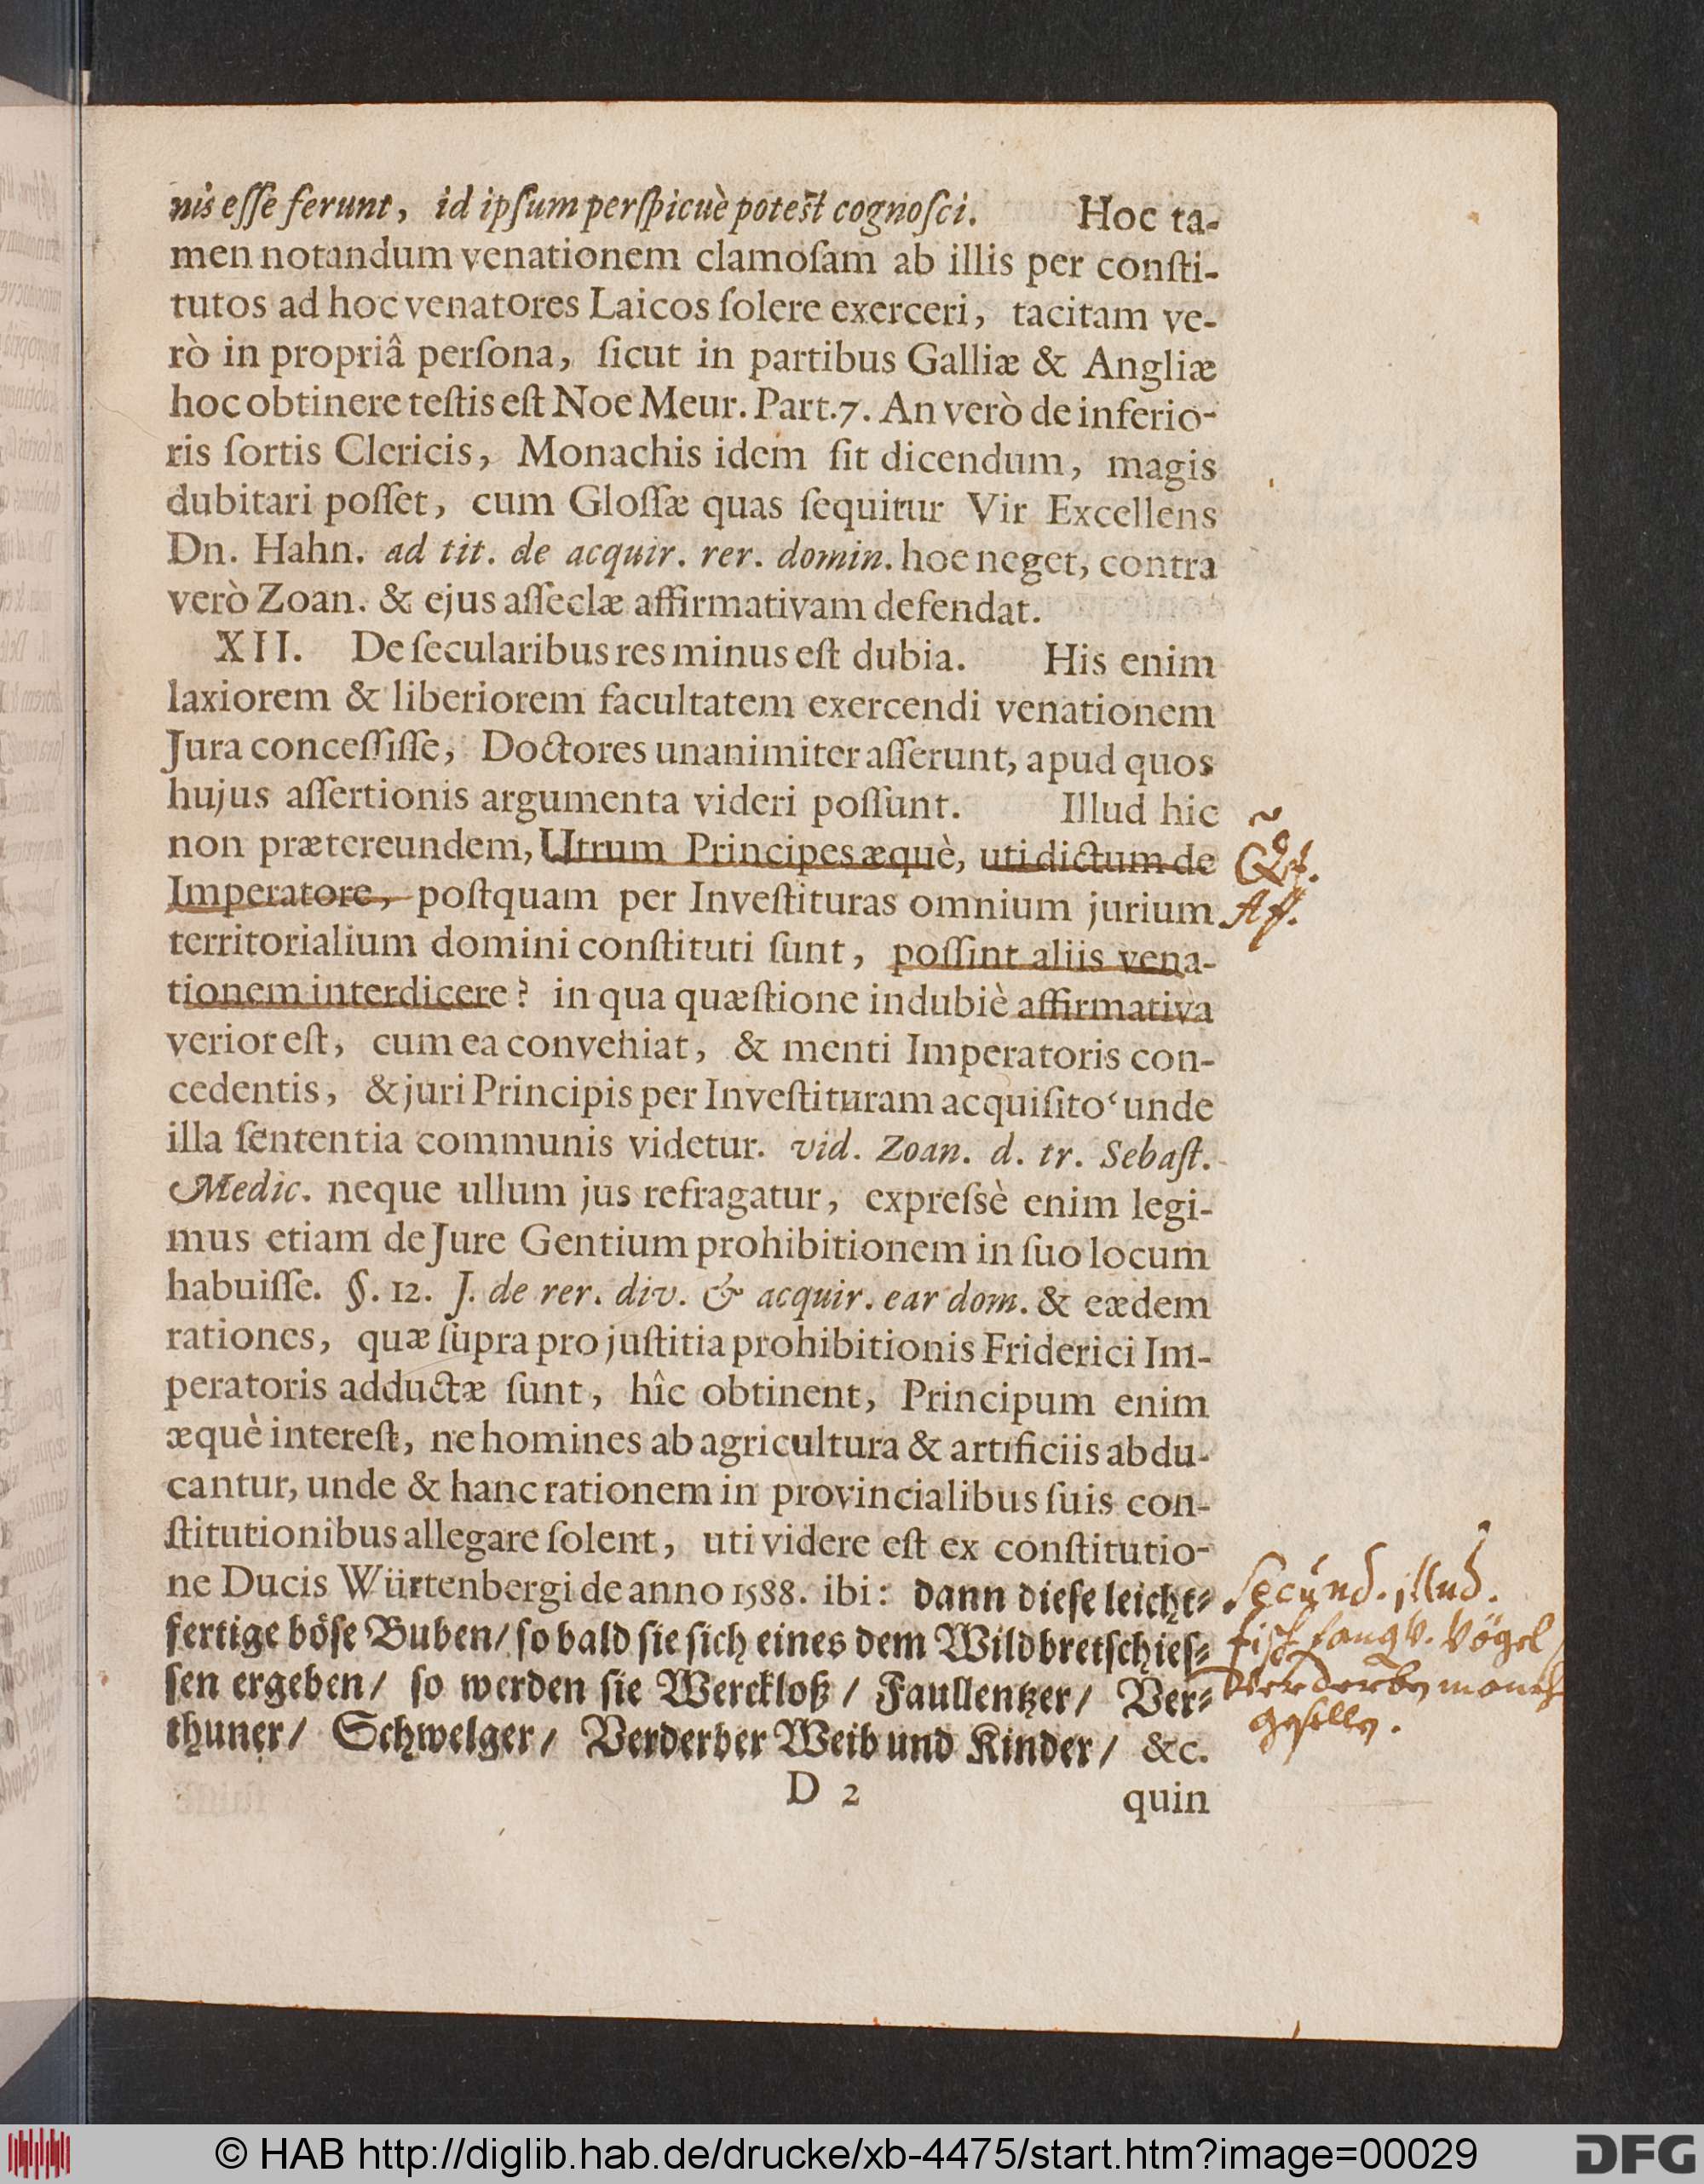 nis eſſe ferunt, id ipſum perſpicuè poteſt cognoſci. Hoc ta-
men notandum venationem clamoſam ab illis per conſti-
tutos ad hoc venatores Laicos ſolere exerceri, tacitam ve-
rò in propriâ perſona, ſicut in partibus Galliæ & Angliæ
hoc obtinere teſtis eſt Noe Meur. Part. 7. An verò de inferio-
ris ſortis Clericis, Monachis idem ſit dicendum, magis
dubitari poſſet, cum Gloſſæ quas ſequitur Vir Excellens
Dn. Hahn. ad tit. de acquir. rer. domin. hoe neget, contra
verò Zoan. & ejus aſſeclæ affirmativam defendat.
XII. De ſecularibus res minus eſt dubia. His enim
laxiorem & liberiorem facultatem exercendi venationem
Jura conceſſiſſe, Doctores unanimiter aſſerunt, apud quos
hujus aſſertionis argumenta videri poſſunt. Illud hic
non prætereundem, Utrum Principes æquè, uti dictum de
Imperatore, poſtquam per Inveſtituras omnium jurium
Aff.
territorialium domini conſtituti ſunt, poſſint aliis vena-
tionem interdicere? in qua quæſtione indubiè affirmativa
verior eſt, cum ea conveniat, & menti Imperatoris con-
cedentis, & juri Principis per Inveſtituram acquiſito‘ unde
illa ſententia communis videtur. vid. Zoan. d. tr. Sebaſt.
Medic. neque ullum jus refragatur, expreſsè enim legi-
mus etiam de Jure Gentium prohibitionem in ſuo locum
habuiſſe. §. 12. J. de rer. div. & acquir. ear dom. & eædem
rationes, quæ ſupra pro juſtitia prohibitionis Friderici Im-
peratoris adductæ ſunt, hîc obtinent, Principum enim
æquè intereſt, ne homines ab agricultura & artificiis abdu-
cantur, unde & hanc rationem in provincialibus ſuis con-
ſtitutionibus allegare ſolent, uti videre eſt ex conſtitutio-
ne Ducis Würtenbergi de anno 1588. ibi: dann dieſe leicht-
fertige böſe Buben/ ſo bald ſie ſich eines dem Wildbretſchieſ-
ſen ergeben/ ſo werden ſie Werckloß/ Faullentzer/ Ver-
thuner/ Schwelger/ Verderber Weib und Kinder/ &c.
secund. illud.
fisch fang v. Vögel
Verderben manch
gesellen.
D 2 quin
© HAB http://diglib.hab.de/drucke/xb-4475/start.htm?image=00029
DFG